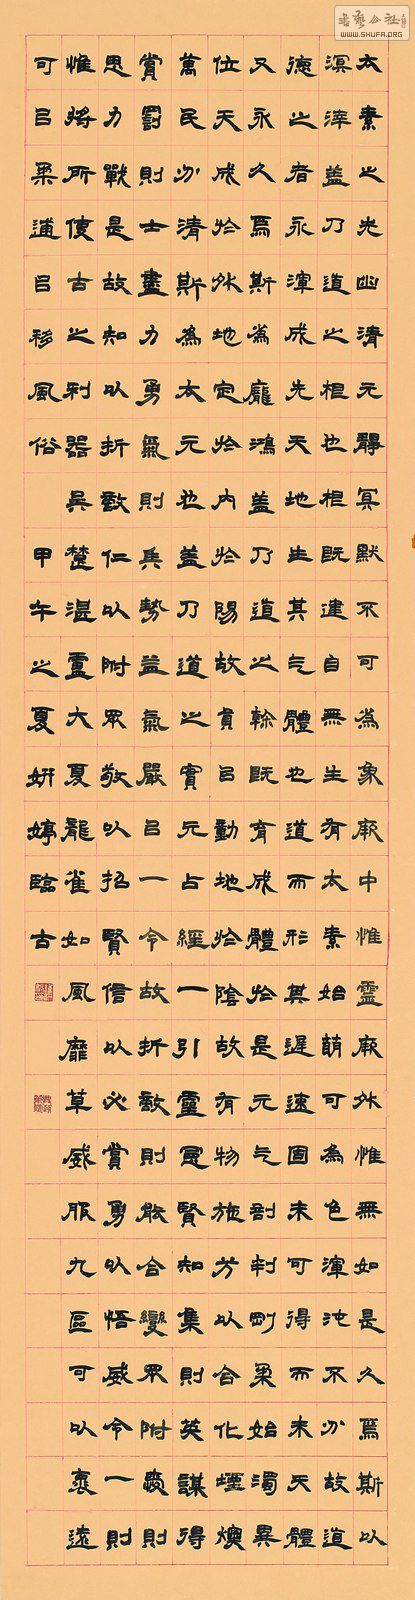 書藝公社
WWW.SHUFA.ORG
太素之先幽清元靜冥默不可為象厥中惟靈厥外惟無如是久焉斯以
溟涬蓋乃道之相也相既建自無生有太素始萌可為色渾沌不分故道
德之者永渾成先天地生其气體也道而形其遲速固未可得而未天體
又永久焉斯為龐鴻蓋乃道之幹既育成體於是元气剖判剛柔始濁異
位天成於外地定於內於陽故員㠯動地於陰故有物施芳以合化堙燠
萬民分清斯為太元也蓋乃道之實元占經一引靈昆賢知集則英謀得
賞罰則士盡力勇氣則兵勢益氣嚴㠯一令故折敵則能合變眾附愛則
思力戰是故知以折敵仁以附眾敬以招賢信以必賞勇以悟威令一則
惟將所使古之利器吳楚湛盧大夏龍雀如風靡草威服九區可以褱遠
可㠯柔逋㠯移風俗
甲午之夏妍婷臨古